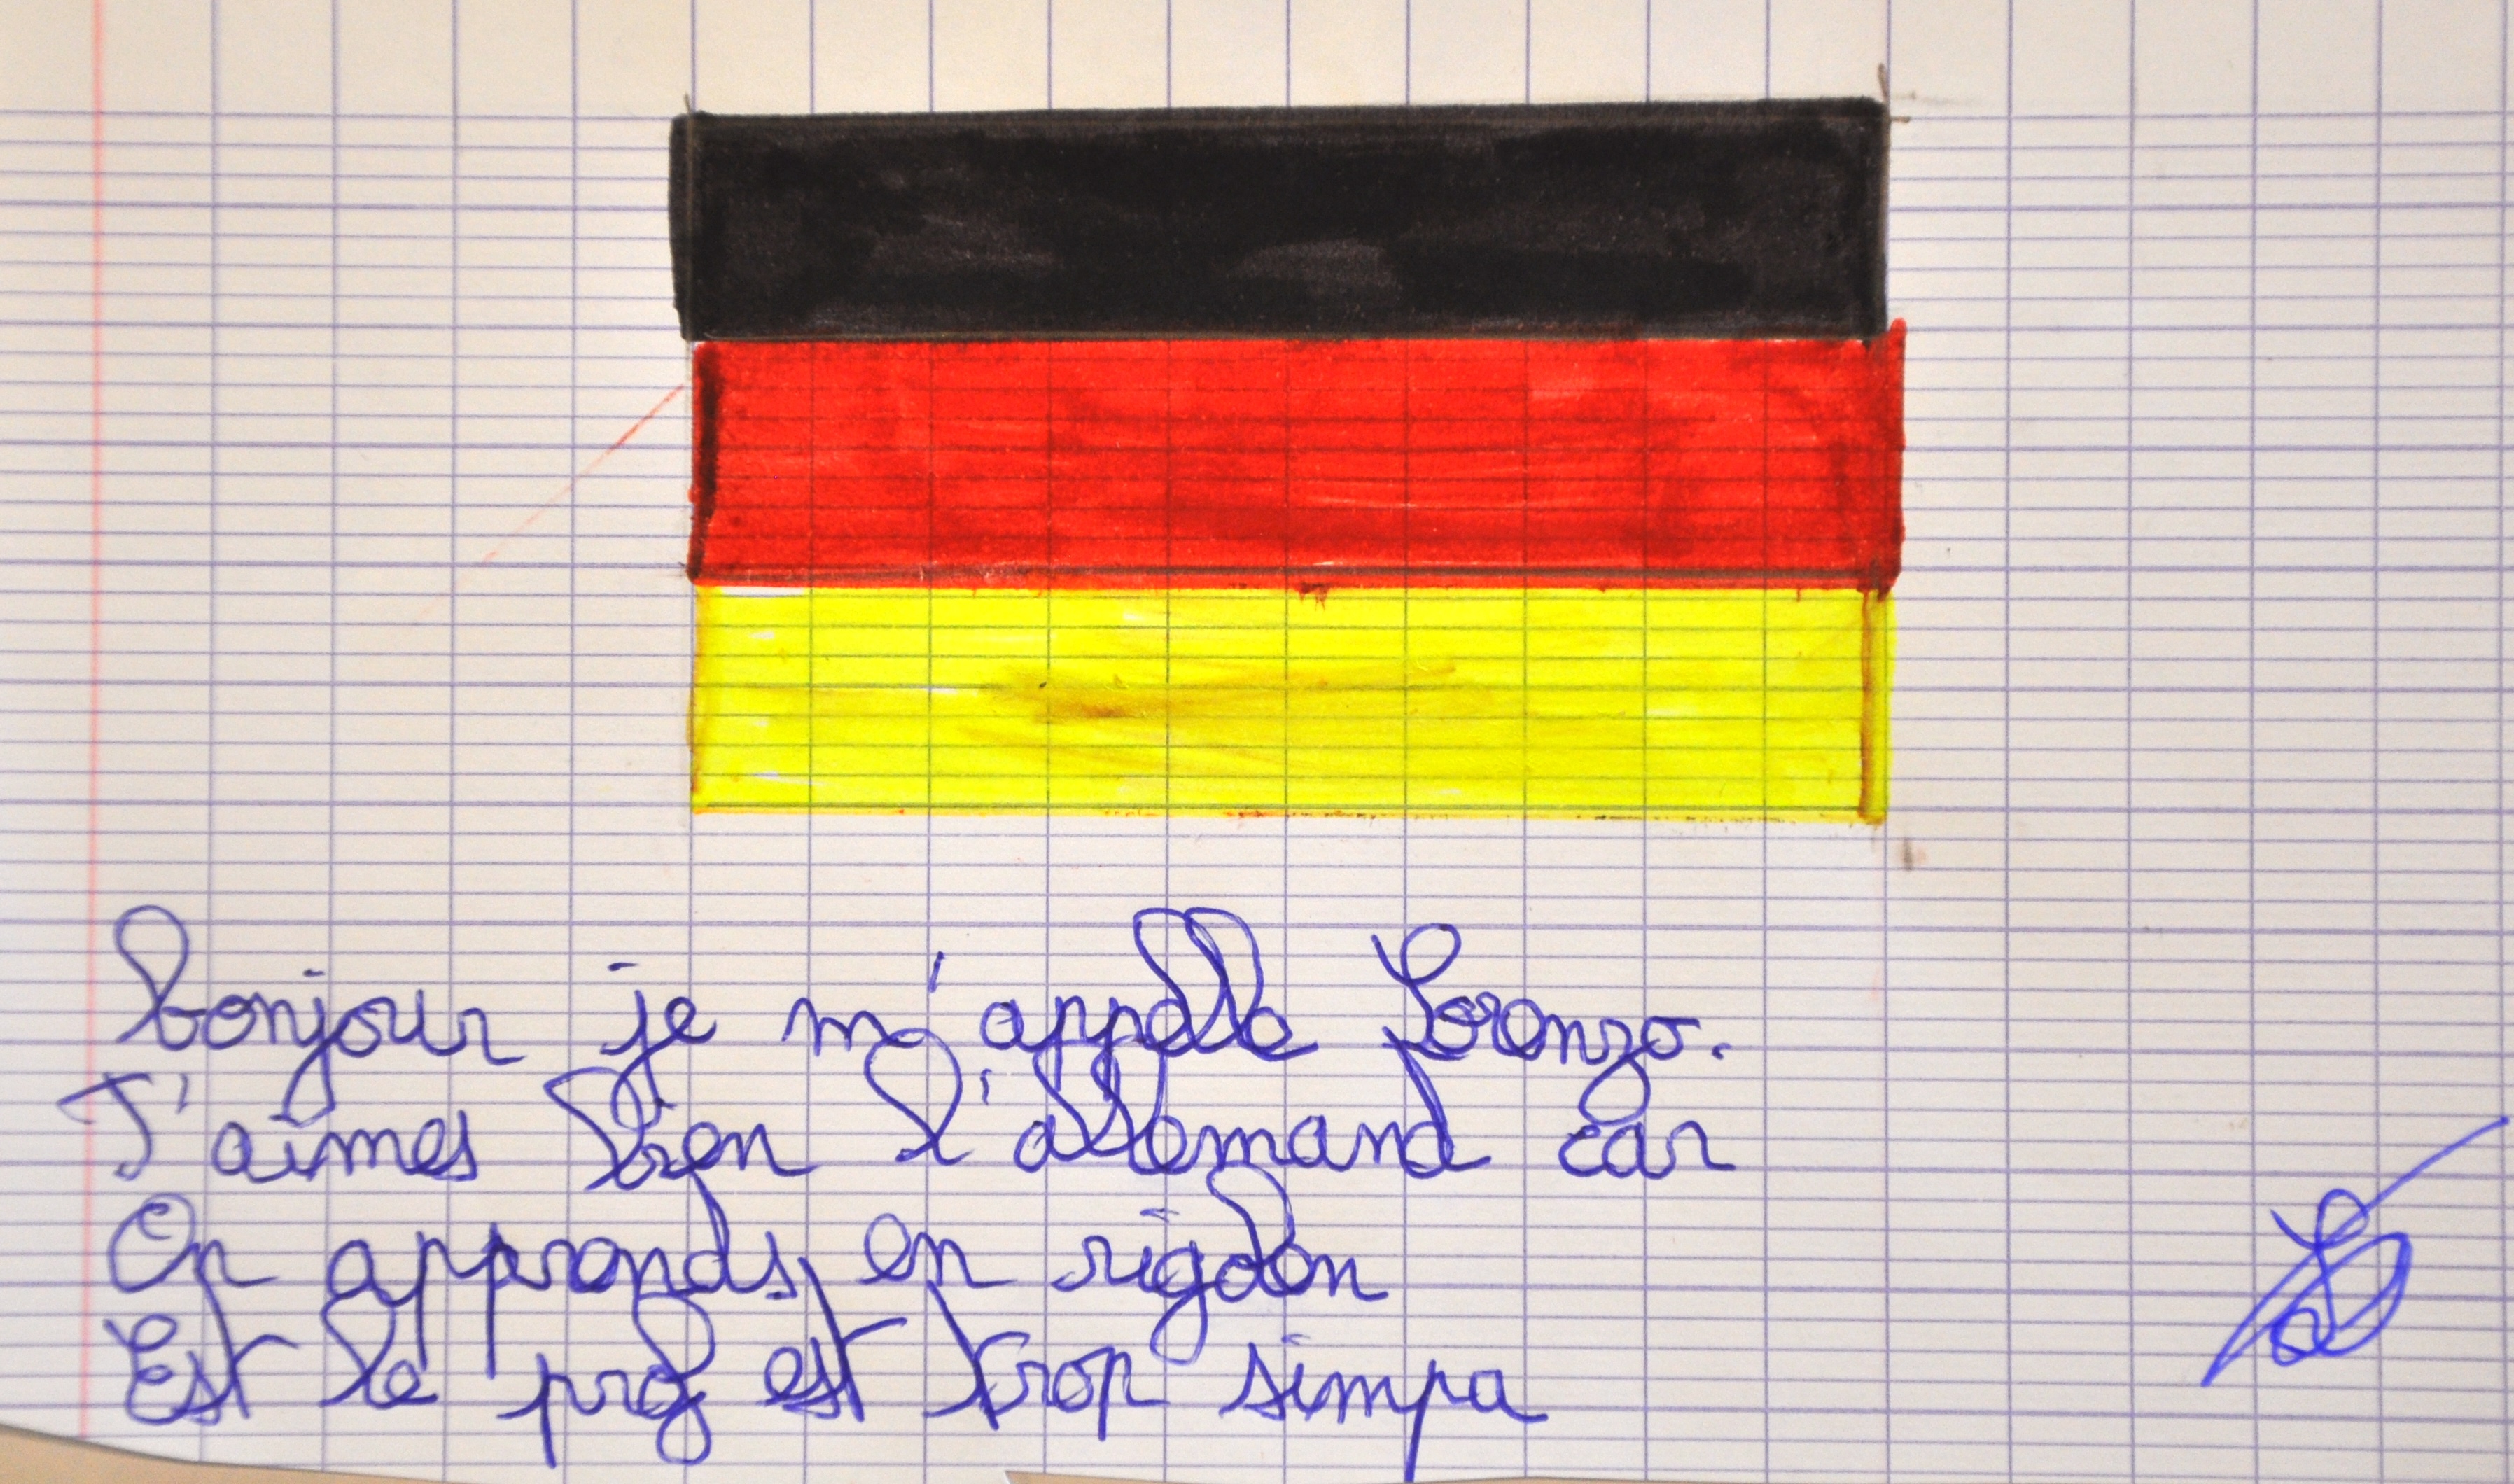 bonjour je m'appelle Lorenzo.
J'aimes bien l'allemand car
On apprends en rigolon
Est le prof est trop simpa